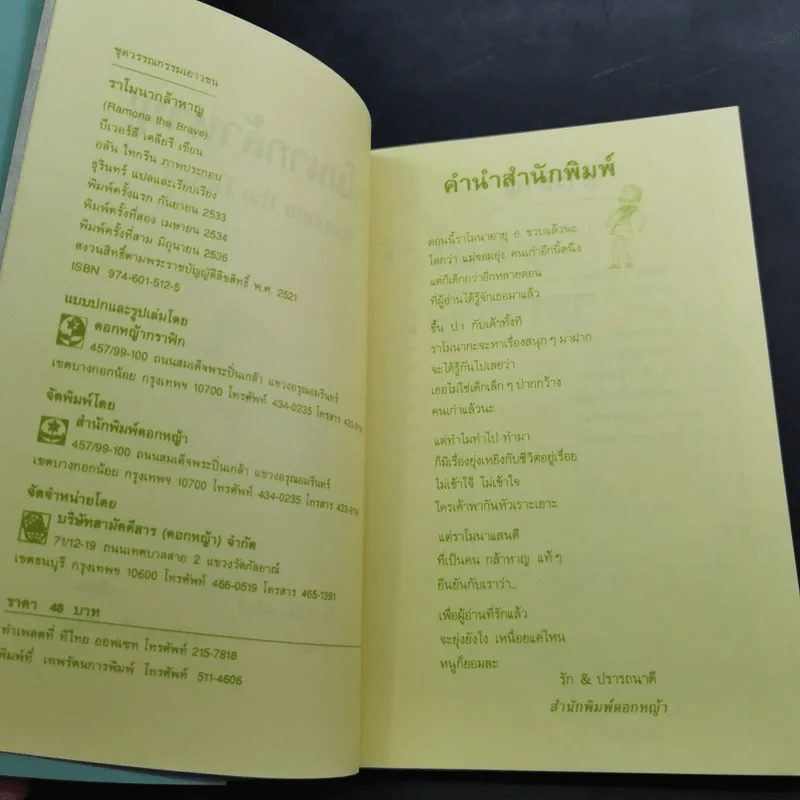 ชุดวรรณกรรมเยาวชน
ราโมนากล้าหาญ
(Ramona the Brave)
บีเวอร์ลี เคลียรี เขียน
อลัน ไทกรีน ภาพประกอบ
ธุรินทร์ แปลและเรียบเรียง
พิมพ์ครั้งแรก กันยายน 2533
พิมพ์ครั้งที่สอง เมษายน 2534
พิมพ์ครั้งที่สาม มิถุนายน 2536
สงวนสิทธิ์ตามพระราชบัญญัติลิขสิทธิ์ พ.ศ. 2521
ISBN 974-601-512-5
แบบปกและรูปเล่มโดย
ดอกหญ้ากราฟิก
457/99-100 ถนนสมเด็จพระปิ่นเกล้า แขวงอรุณอมรินทร์
เขตบางกอกน้อย กรุงเทพฯ 10700 โทรศัพท์ 434-0235 โทรสาร
จัดพิมพ์โดย
สำนักพิมพ์ดอกหญ้า
457/99-100 ถนนสมเด็จพระปิ่นเกล้า แขวงอรุณอมรินทร์
เขตบางกอกน้อย กรุงเทพฯ 10700 โทรศัพท์ 434-0235 โทรสาร
จัดจำหน่ายโดย
บริษัทสามัคคีสาร (ดอกหญ้า) จำกัด
71/12-19 ถนนเทศบาลสาย 2 แขวงวัดกัลยาณ์
เขตธนบุรี กรุงเทพฯ 10600 โทรศัพท์ 466-0519 โทรสาร 465-1391
ราคา 48 บาท
ทำเพลตที่ ทีไทย ออฟเซท โทรศัพท์ 215-7818
พิมพ์ที่ เทพรัตนการพิมพ์ โทรศัพท์ 511-4606
คำนำสำนักพิมพ์
ตอนนี้ราโมนาอายุ 6 ขวบแล้วนะ
โตกว่า แม่จอมยุ่ง คนเก่าอีกนิดนึง
แต่ก็เด็กกว่าอีกหลายตอน
ที่ผู้อ่านได้รู้จักเธอมาแล้ว
ขึ้น ป.1 กับเค้าทั้งที
ราโมนากะจะหาเรื่องสนุก ๆ มาฝาก
จะได้รู้กันไปเลยว่า
เธอไม่ใช่เด็กเล็ก ๆ ปากกว้าง
คนเก่าแล้วนะ
แต่ทำไมทำไป ทำมา
ก็มีเรื่องยุ่งเหยิงกับชีวิตอยู่เรื่อย
ไม่เข้าใจ๊ ไม่เข้าใจ
ใครเค้าพากันหัวเราะเยาะ
แต่ราโมนาแสนดี
ที่เป็นคน กล้าหาญ แท้ ๆ
ยืนยันกับเราว่า...
เพื่อผู้อ่านที่รักแล้ว
จะยุ่งยังไง เหนื่อยแค่ไหน
หนูก็ยอมละ
รัก & ปรารถนาดี
สำนักพิมพ์ดอกหญ้า